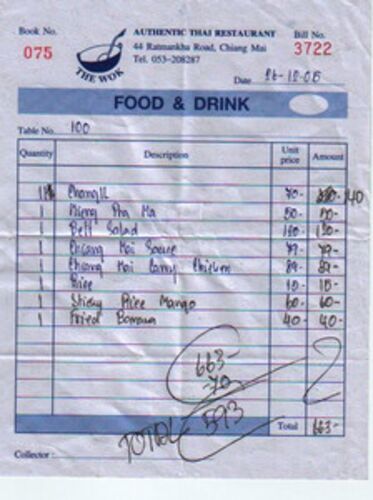 Book No. AUTHENTIC THAI RESTAURANT Bill No.
075 44 Ratmankha Road, Chiang Mai 3722
THE WOK Tel. 053-208287
Date
FOOD & DRINK
Table No. 100
Quantity Description Unit price Amount
Chang 70- 140
1 Mieng Pla 50- 50-
1 Salad
1 Chiang Mai 79- 79-
1 Chiang Mai Curry Chicken 89- 89-
1 Rice 15- 15-
1 Sticky Rice Mango 60- 60-
1 Fried Banana 40- 40-
663-
-70
TOTAL 593
Total 663-
Collector